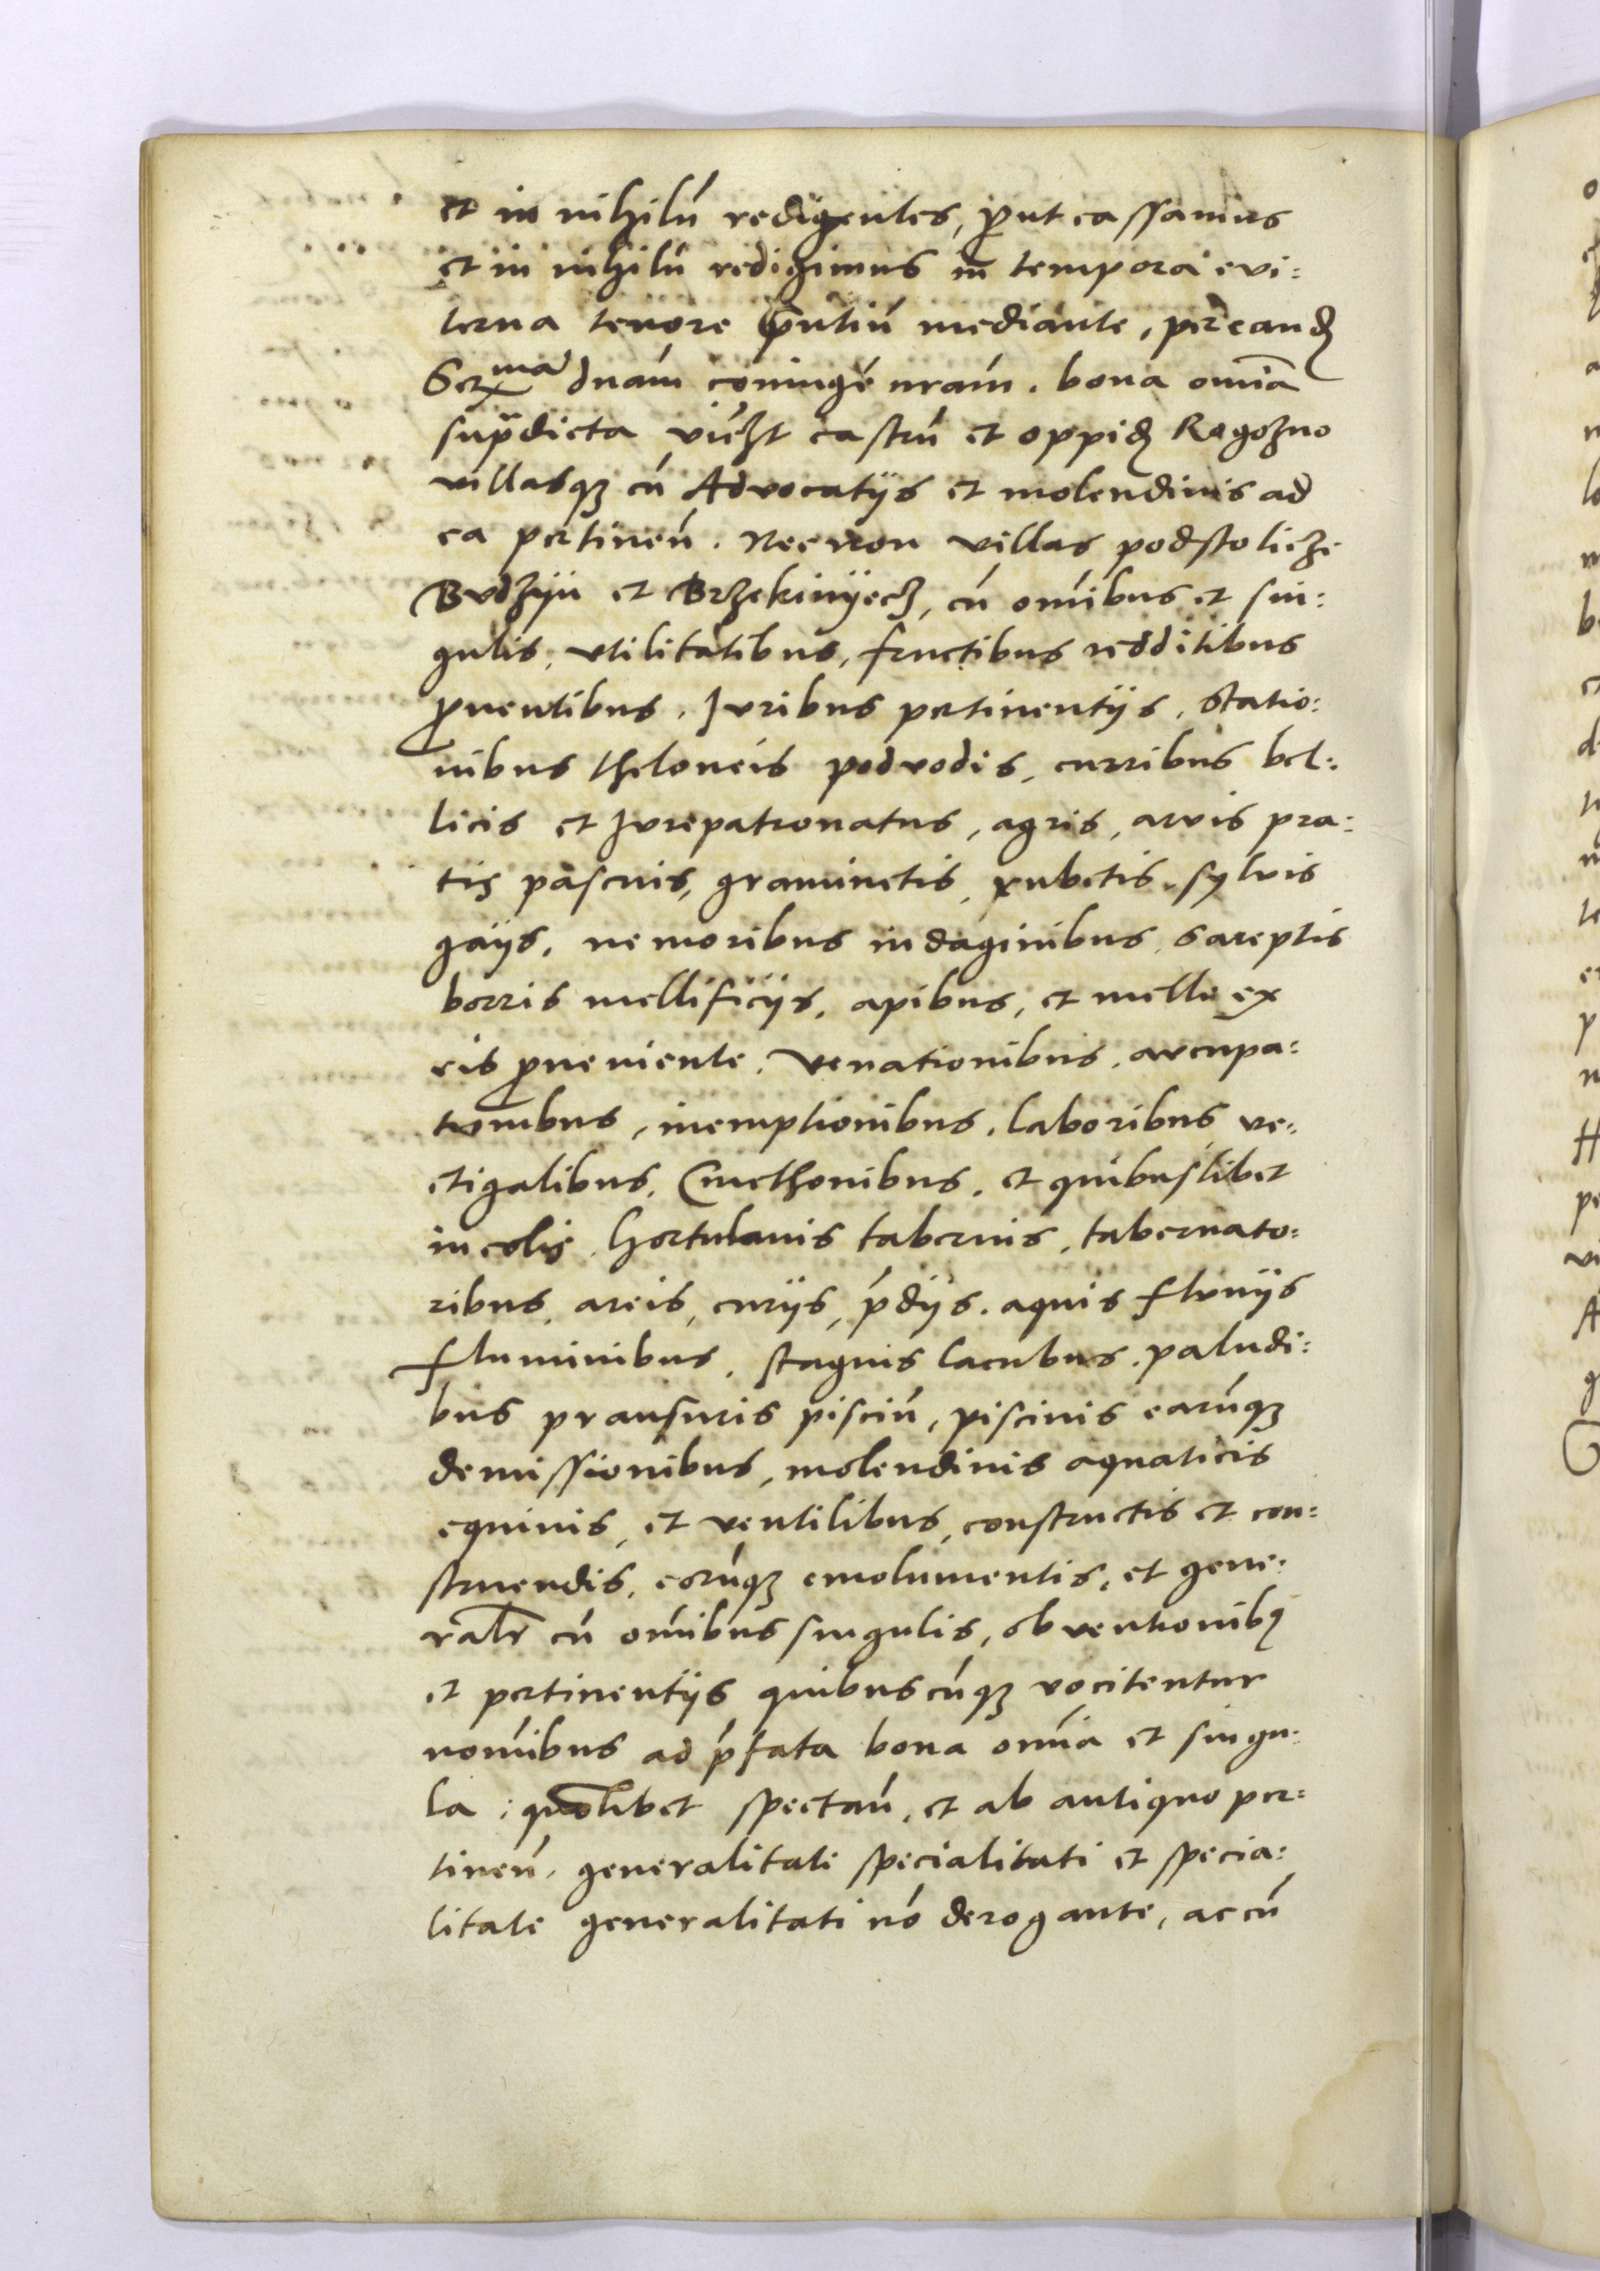 et in nihilū redigentes, ꝓut cassamus
et in nihilū redigimus in tempora evi:
terna tenore pn̄tiū mediante, per eandꝫ
Serma dnām coniugē nrām. bona om̄ia
supradicta vidꝫt castrū et oppidꝫ Rogozno
villasqꝫ cū Advocatijs et molendinis ad
ea pertinen̄. Necnon villas podstolicze
Budzyn et Brzekinyeczꝫ, cū om̄ibus et sin:
gulis, vtilitatibus, fructibus redditibus
ꝓuentibus. Juribus pertinentijs. Statio:
nibus theloneis podvodis, curribus bel:
licis et Jurepatronatus, agris, arvis pra:
tis pascuis, graminetis, rubetis, sylvis
gays, nemoribus indaginibus, sareptis
borris mellificijs, apibus, et melle ex
eis ꝓueniente. Venationibus. aucupa:
tionibus, inemptionibus. laboribus, ve:
ctigalibus. Cmethonibus. et quibuslibet
incolis. hortulanis tabernis, tabernato:
ribus, areis, curijs, p̄dijs. aquis fluvijs
fluminibus. stagnis lacubus. paludi:
bus prausuris pisciū, piscinis earūqꝫ
demissionibus, molendinis aquaticis
equinis, et ventilibus, constructis et con:
struendis, eorūqꝫ emolumentis, et gene:
ralr cū om̄ibus singulis, obventionibꝰ
et pertinentijs quibuscūqꝫ vocitentur
nom̄ibus ad p̄fata bona om̄ia et singu:
la: quolibet spectan̄, et ab antiquo per:
tinen̄. generalitate specialitati et specia:
litate generalitati nō derogante, ac cū